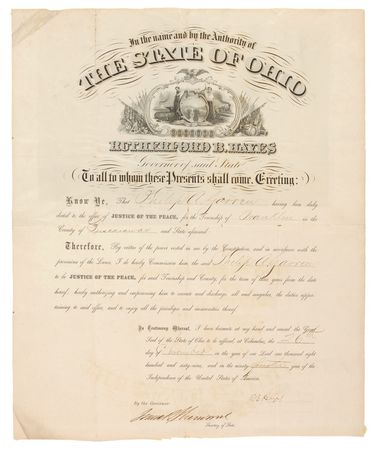 In the name and by the Authority of
THE STATE OF OHIO
RUTHERFORD B. HAYES
Governor of said State
To all to whom these Presents shall come, Greeting:
Know Ye, That Philip having been duly
elected to the office of JUSTICE OF THE PEACE, for the Township of in the
County of Tuscarawas and State aforesaid
Therefore, By virtue of the power vested in me by the Constitution, and in accordance with the
provisions of the Laws, I do hereby Commission him, the said Philip
to be JUSTICE OF THE PEACE, for said Township and County, for the term of three years from the date
hereof; hereby authorizing and empowering him to execute and discharge, all and singular, the duties appertaining
to said office, and to enjoy all the privileges and immunities thereof.
In Testimony Whereof, I have hereunto set my hand and caused the Great
Seal of the State of Ohio to be affixed, at Columbus, the
day of in the year of our Lord one thousand eight
hundred and sixty-nine, and in the ninety fourth year of the
Independence of the United States of America.
R B Hayes
By the Governor
Secretary of State